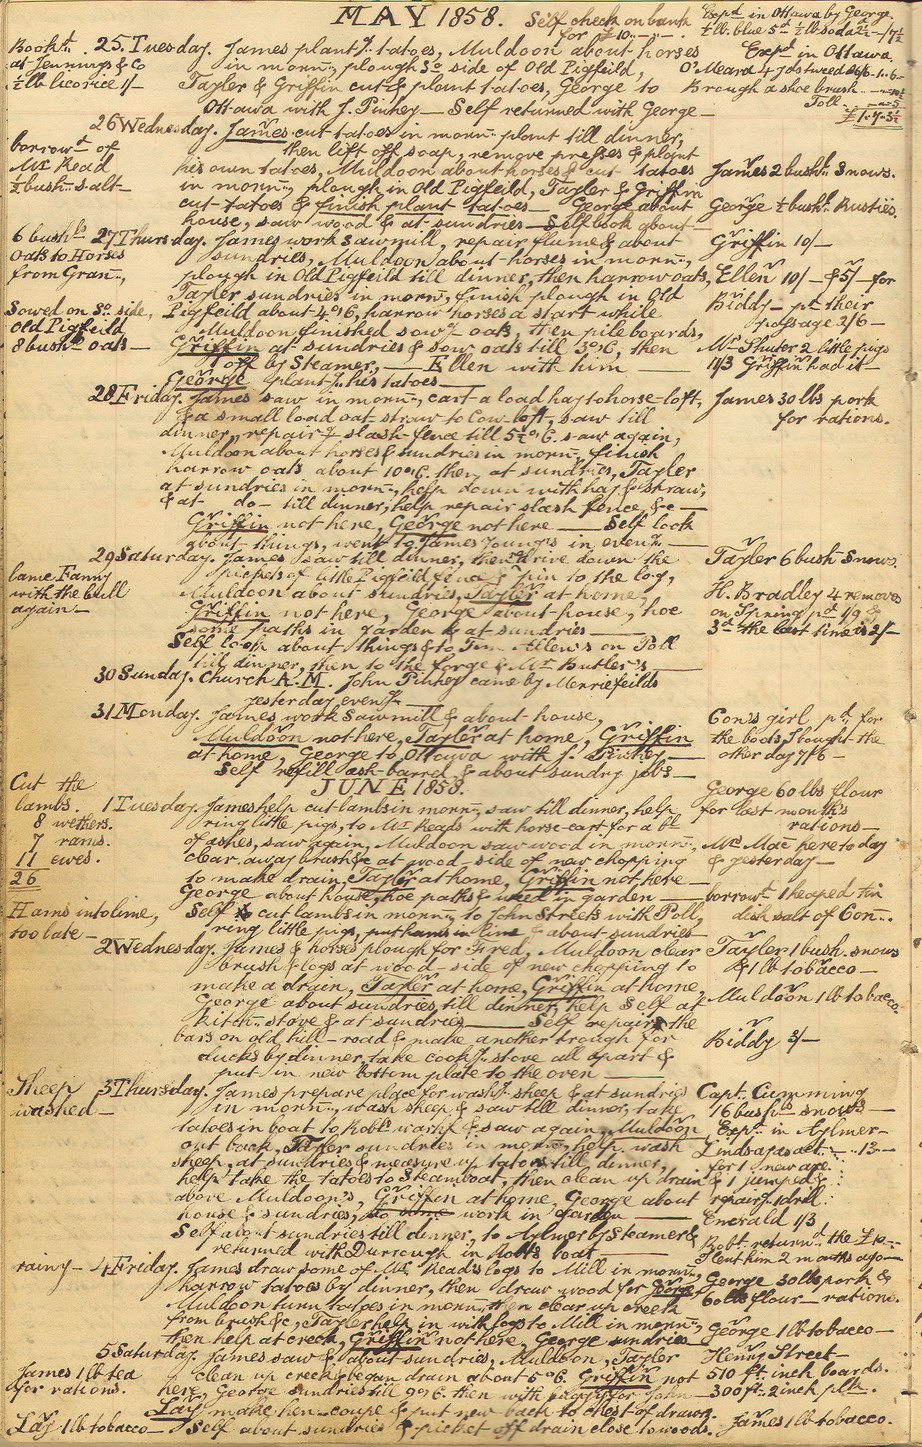 MAY 1858. Self check on bank for £10..-..-.
Expd in Ottawa by George.
½ lb. blue 5d ½ lb soda 2½ - /7½
Bookd at Jennings & Co
½ lb licorice 1/-
25. Tuesday. James plantg tatoes, Muldoon about horses
in morng, plough So side of Old Pigfeild,
Tayler & Griffin cut & plant tatoes, George to
Ottawa with J. Pinhey - Self returned with George -
Expd in Ottawa,
O'Meara 4 yds tweed
Brough a shoe brush
Toll
£1..7..3½
26 Wednesday. James cut tatoes in morng plant till dinner,
then lift off soap, remove presses & plant
his own tatoes, Muldoon about horses & cut tatoes
in morng, plough in Old Pigfeild, Tayler & Griffin
cut tatoes & finish plant tatoes - George about
house, saw wood & at sundries - Self book about -
borrowd of
Mr Read
½ bush. salt -
James 2 bushls Snows.
George ½ bushl Rusties.
6 bushls
Oats to Horses
from Gran..,
Sowed on So. side,
Old Pigfeild
8 bushls oats -
27 Thursday. James work Sawmill, repair flume & about
sundries, Muldoon about horses in morng,
plough in Old Pigfeild till dinner, then harrow oats,
Tayler sundries in morng, finish plough in Old
Pigfeild about 4 o'C, harrow horses a start while
Muldoon finished sowg oats, then pile boards,
Griffin at sundries & sow oats till 3 o'C, then
off by Steamer, - Ellen with him -
George plantg his tatoes -
Griffin 10/-
Ellen 10/- & 5/- for
Biddy - pd their
passage 2/6 -
Mr Shuter 2 little pigs
11/3 Griffin had it -
28 Friday. James saw in morng, cart a load hay to horse-loft,
& a small load oat straw to Cow-loft, saw till
dinner, repairg slash fence till 5½ o'C. saw again,
Muldoon about horses & sundries in morng, finish
harrow oats about 10 o'C. then at sundries, Tayler
at sundries in morng, help down with hay & straw,
& at - do - till dinner, help repair slash fence, &c -
Griffin not here, George not here - Self look
about things, went to James Young's in eveng -
James 30 lbs pork
for rations.
29 Saturday. James saw till dinner, then drive down the
pickets of little Pigfeild fence & pin to the log,
Muldoon about sundries, Tayler at home,
Griffin not here, George about house, hoe
some paths in garden & at sundries -
Self look about things & to Allen's on Poll
till dinner, then to the forge & Mr Butler's -
lame Fanny
with the bull
again -
Tayler 6 bush Snows.
H. Bradley 4 removes
on Spring pd 1/9 &
3d the last time is 2/-
30 Sunday. Church A.M. John Pinhey came by Merriefeilds
yesterday eveng -
31 Monday. James work Sawmill & about house,
Muldoon not here, Tayler at home, Griffin
at home, George to Ottawa with J. Pinhey -
Self refill ash-barrel & about sundry jobs -
Con's girl pd for
the boots I bought the
other day 7/6 -
JUNE 1858.
Cut the
lambs.
8 wethers.
7 rams.
11 ewes.
26
Hams into lime,
too late -
1 Tuesday. James help cut lambs in morng, saw till dinner, help
ring little pigs, to Mr Heads with horse-cart for a bl
of ashes, saw again, Muldoon saw wood in morng,
clear away brush &c at wood-side of new chopping
to make drain, Tayler at home, Griffin not here -
George about house, hoe paths & weed in garden -
Self cut lambs in morng, to John Streets with Poll,
ring little pigs, put hams in lime & about sundries -
George 60 lbs flour
for last month's
rations -
Mrs Mac here to day
& yesterday -
borrowd 1 heaped tin
dish salt of Con..
2 Wednesday. James & horses plough for Fred, Muldoon clear
brush & logs at wood-side of new chopping to
make a drain, Tayler at home, Griffin at home,
George about sundries till dinner, help Self at
kitchn stove & at sundries - Self repair the
bars on old hill-road & make another trough for
ducks by dinner, take cookg stove all apart &
put in new bottom plate to the oven -
Tayler 1 bush. snows
& 1 lb tobacco -
Muldoon 1 lb tobacco.
Biddy 3/-
Sheep
washed -
3 Thursday. James prepare place for washg sheep & at sundries
in morng, wash sheep & saw till dinner, take
tatoes in boat to Robt's warhf & saw again, Muldoon
out back, Tayler sundries in morng, help wash
sheep, at sundries & measure up tatoes till dinner,
help take the tatoes to Steamboat, then clean up drain
above Muldoon's, Griffin at home, George about
house & sundries, work in Garden -
Self about sundries till dinner, to Aylmer by Steamer &
returned with Durrough in Robt's boat -
Capt. Cumming
16 bushls snows -
Expd in Aylmer -
Lindsays act. - .. 13..-
for 1 new axe
& 1 jumped &
repairg 1 drill
Emerald 1/3
Robt. returnd the £10..-
I lent him 2 months ago -
rainy -
4 Friday. James draw some of Mr Read's logs to Mill in morng,
harrow tatoes by dinner, then draw wood for George
Muldoon turn tatoes in morng, then clear up creek
from brush &c, Tayler help in with logs to Mill in morng,
then help at creek, Griffin not here, George sundries -
George 30 lbs pork &
60 lbs flour - rations.
George 1 lb tobacco -
5 Saturday. James saw & about sundries, Muldoon, Tayler
clean up creek & began drain about 5 o'C. Griffin not
here, George sundries till 9 o'C. then with for John -
Lay make hen-coupe & put new back to chest of drawrs.
Self about sundries & picket off drain close to woods.
James 1 lb tea
for rations.
Lay 1 lb tobacco -
Henry Street -
510 ft. inch boards.
300 ft. 2 inch plk.
James 1 lb tobacco.